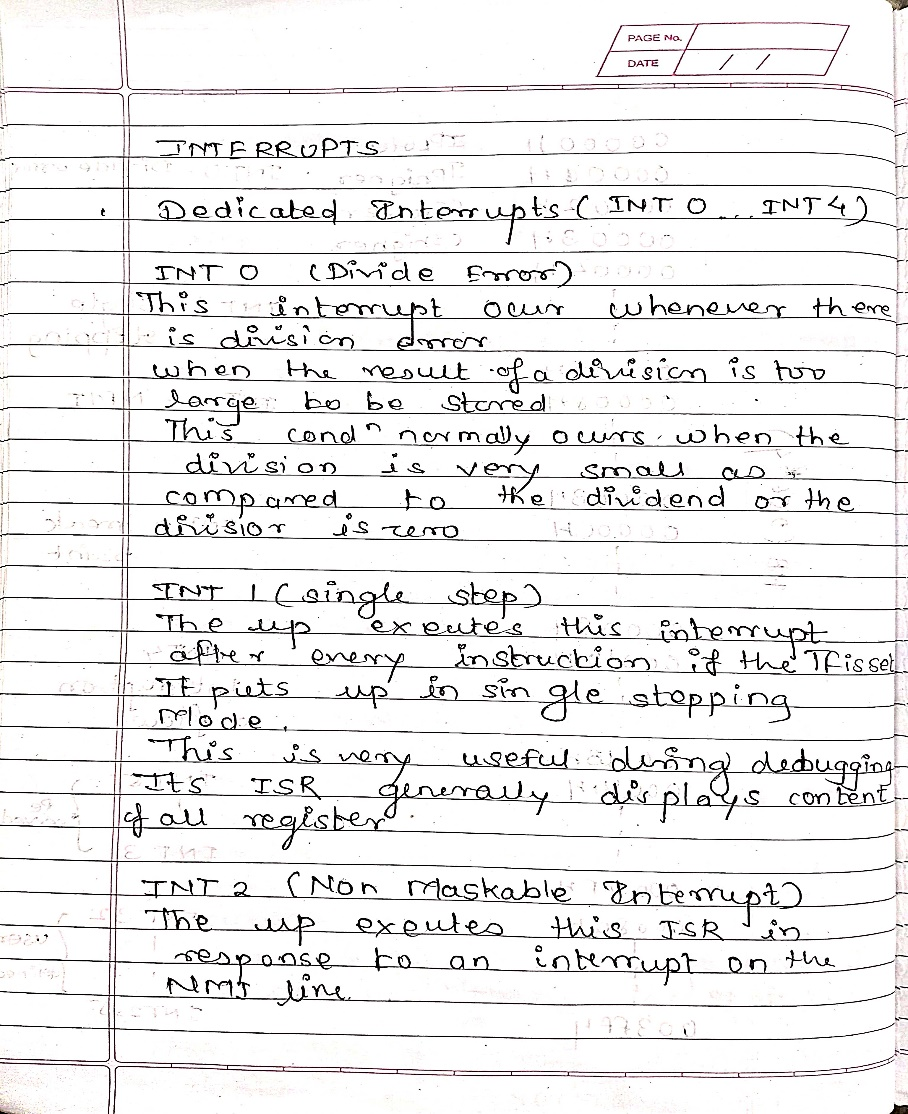 PAGE No.
DATE / /
INTERRUPTS
Dedicated Interrupts ( INT 0 ... INT 4 )
INT 0 (Divide Error)
This interrupt ocur whenever there
is division error
when the result of a division is too
large to be stored
This condⁿ normally ocurs when the
division is very small as
compared to the dividend or the
divisior is zero
INT 1 (single step)
The up exeutes this interrupt
after every instruction if the TF is set
It puts up in single stepping
Mode.
This is very useful during debugging
Its ISR generally displays content
of all register
INT 2 (Non Maskable Interrupt)
The up exeutes this ISR in
response to an interrupt on the
NMI line